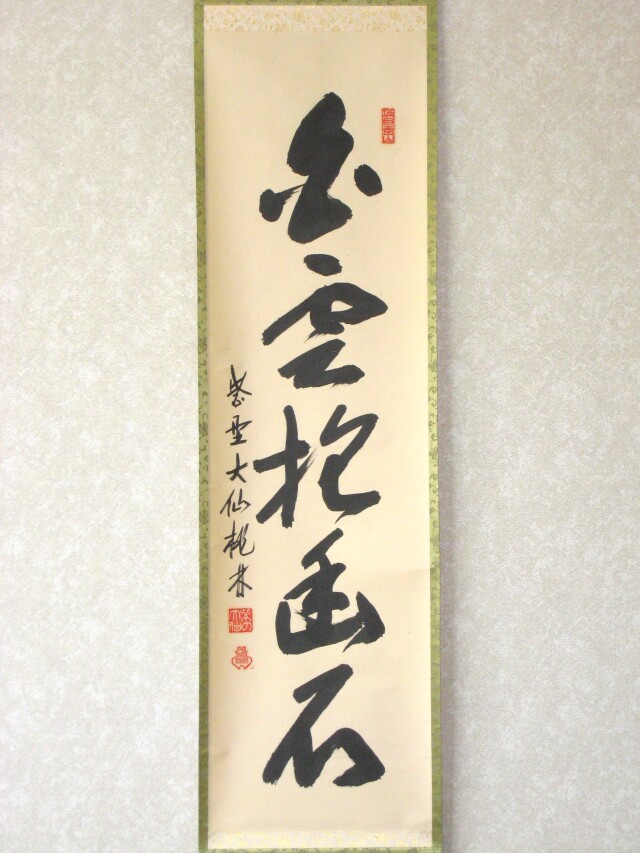 白雲抱幽石
紫野大仙桃林